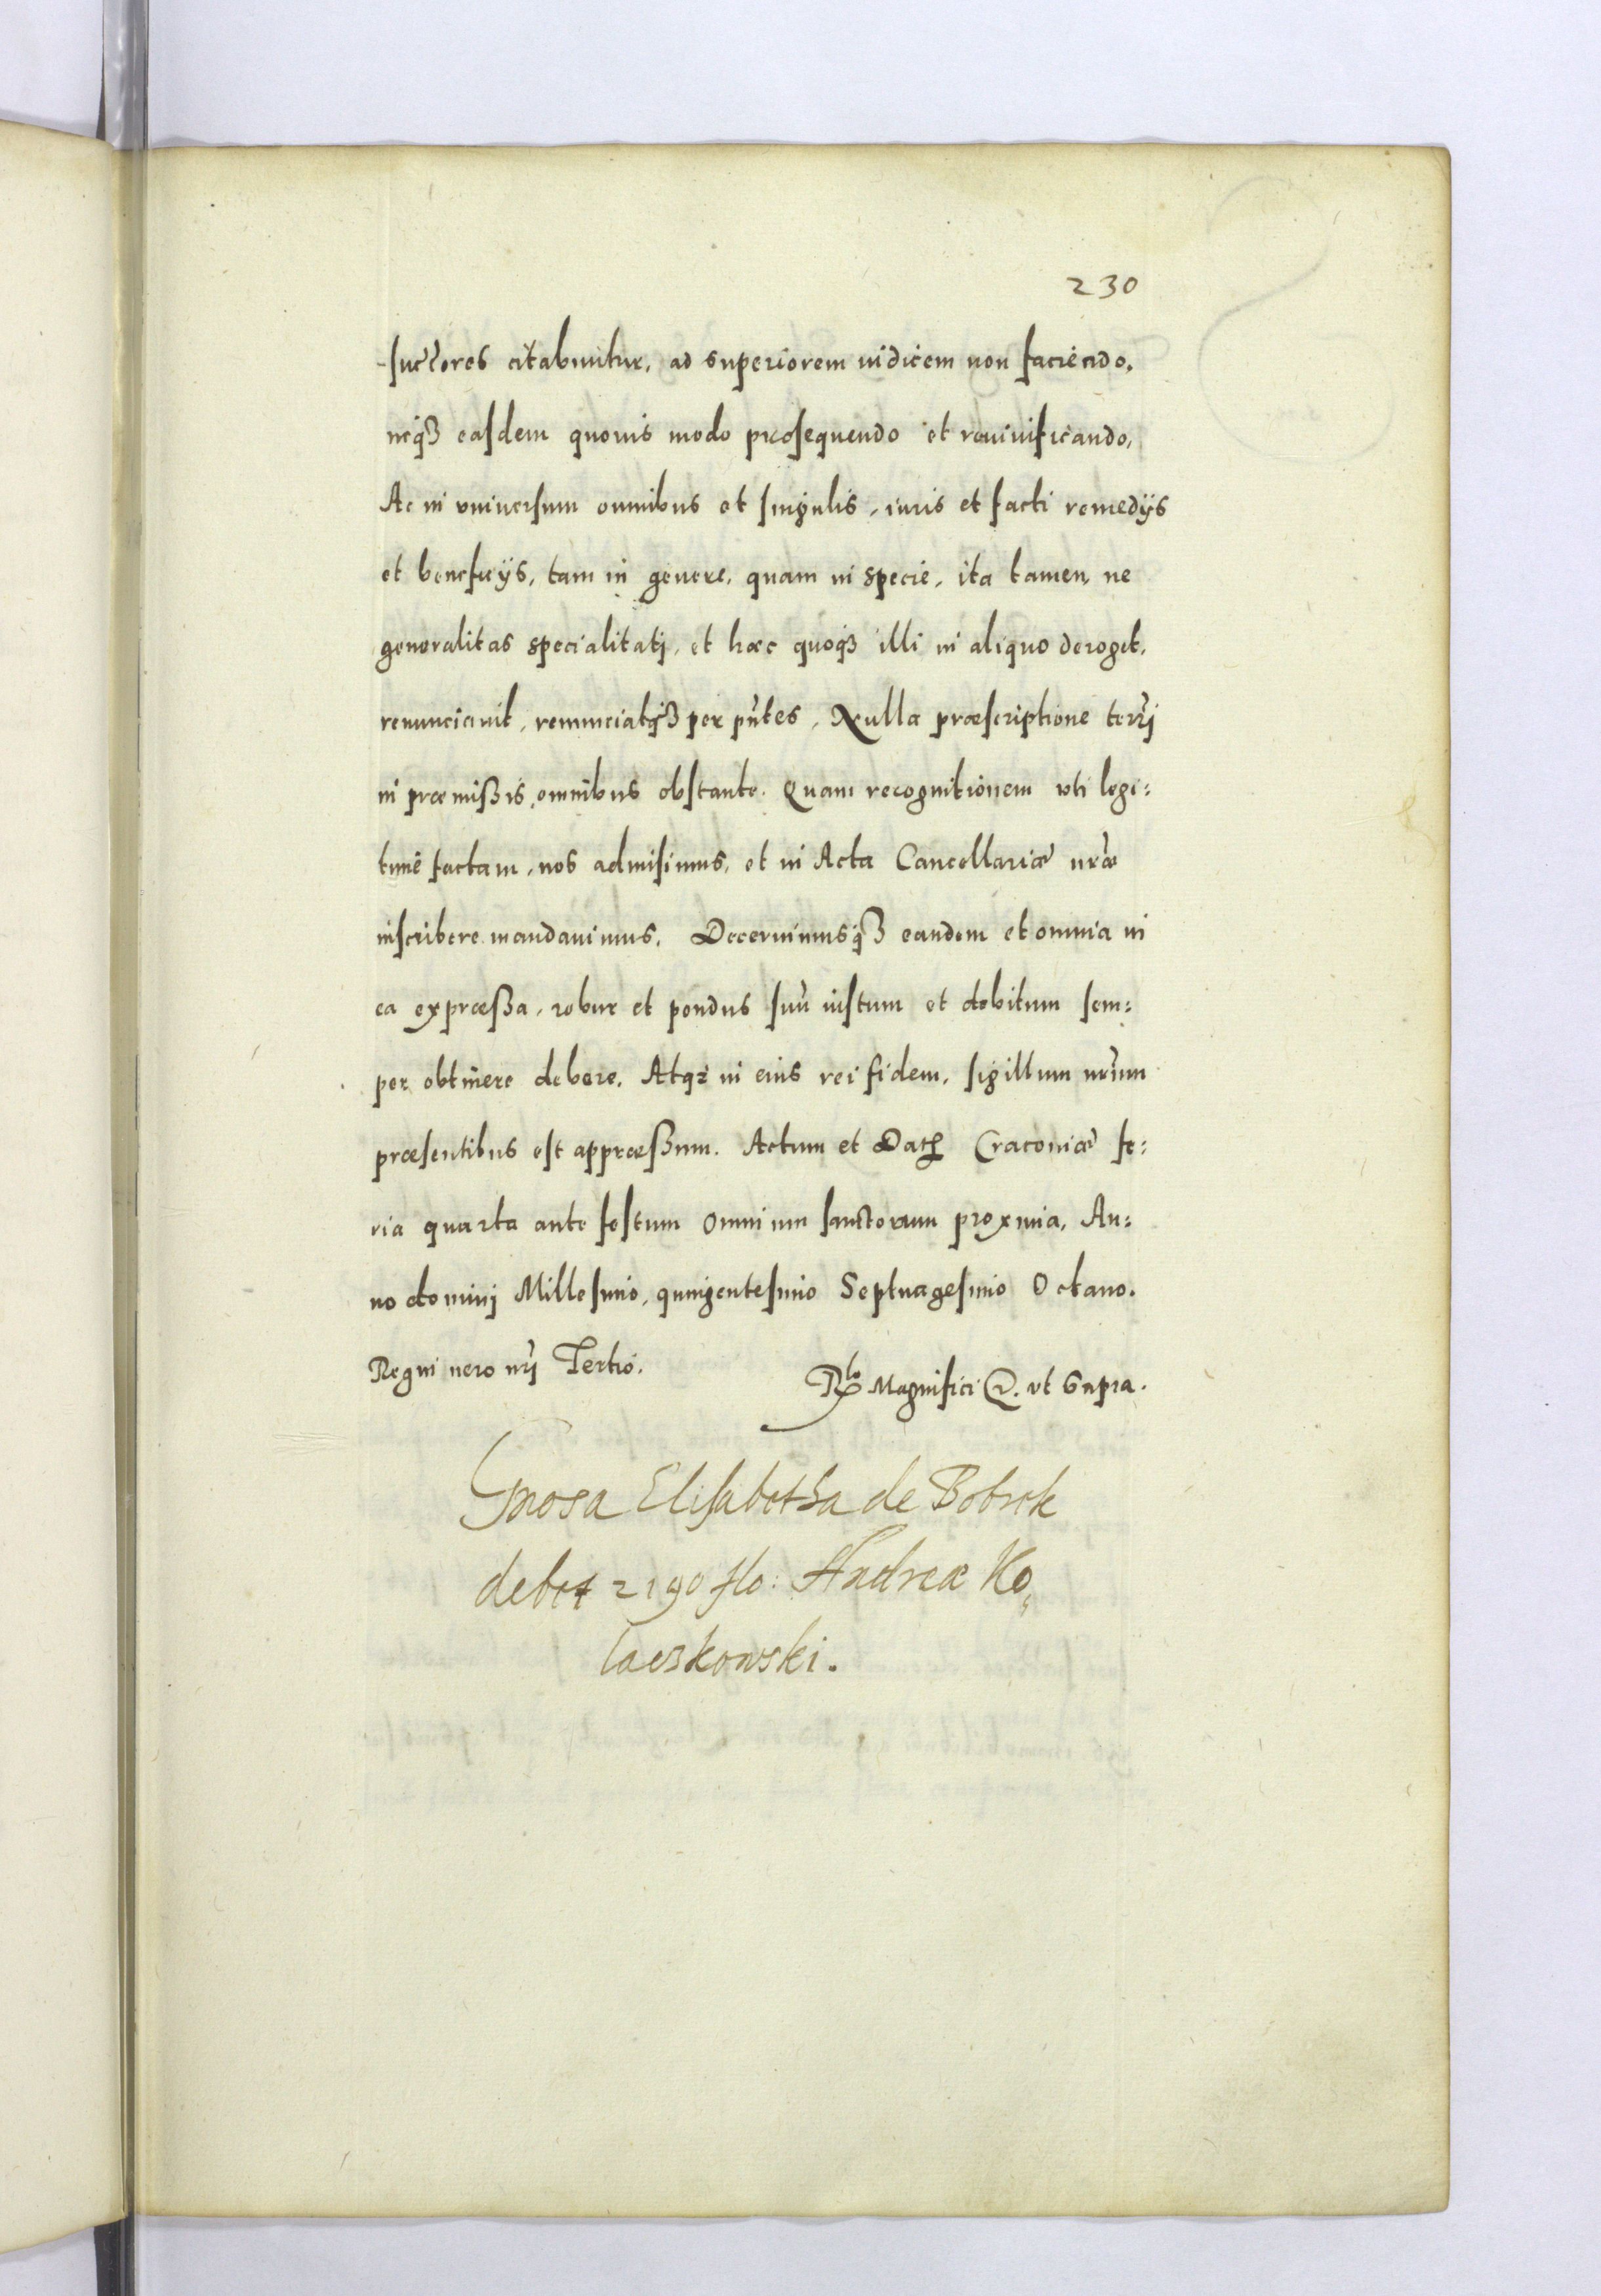 230
succ̃ores citabuntur, ad superiorem iudicem non faciendo,
neq̃ȝ easdem quouis modo prosequendo et reuiuificando,
Ac in vniuersum omnibus et singulis, iuris et facti remedijs
et beneficijs, tam in genere, quam in specie, ita tamen, ne
generalitas specialitatj, et hæc quoq̃ȝ illi in aliquo deroget,
renunciauit, renunciatq̃ȝ per pñtes, Nulla præscriptione terrj
in præmißis omnibus obstante. Quam recognitionem vti legi:
timè factam, nos admisimus, et in Acta Cancellariæ nr̃æ
inscribere mandauimus, Decernimusq̃ȝ eandem et omnia in
ea expræßa, robur et pondus suũ iustum et debitum sem:
per obtinere debere. Atqȝ in eius rei fidem, sigillum nr̃um
præsentibus est appræßum. Actum et Datꝭ Cracouiæ fe:
ria quarta ante festum Omnium sanctorum proxima, An:
no dominj Millesimo, quingentesimo Septuagesimo Octauo.
Regni uero nr̃j Tertio.
Rlo Magnifici D. vt Supra.
Gnosa Elisabetha de Bobrek
debet 2190 flo: Andreæ Ko„
laczkowski.